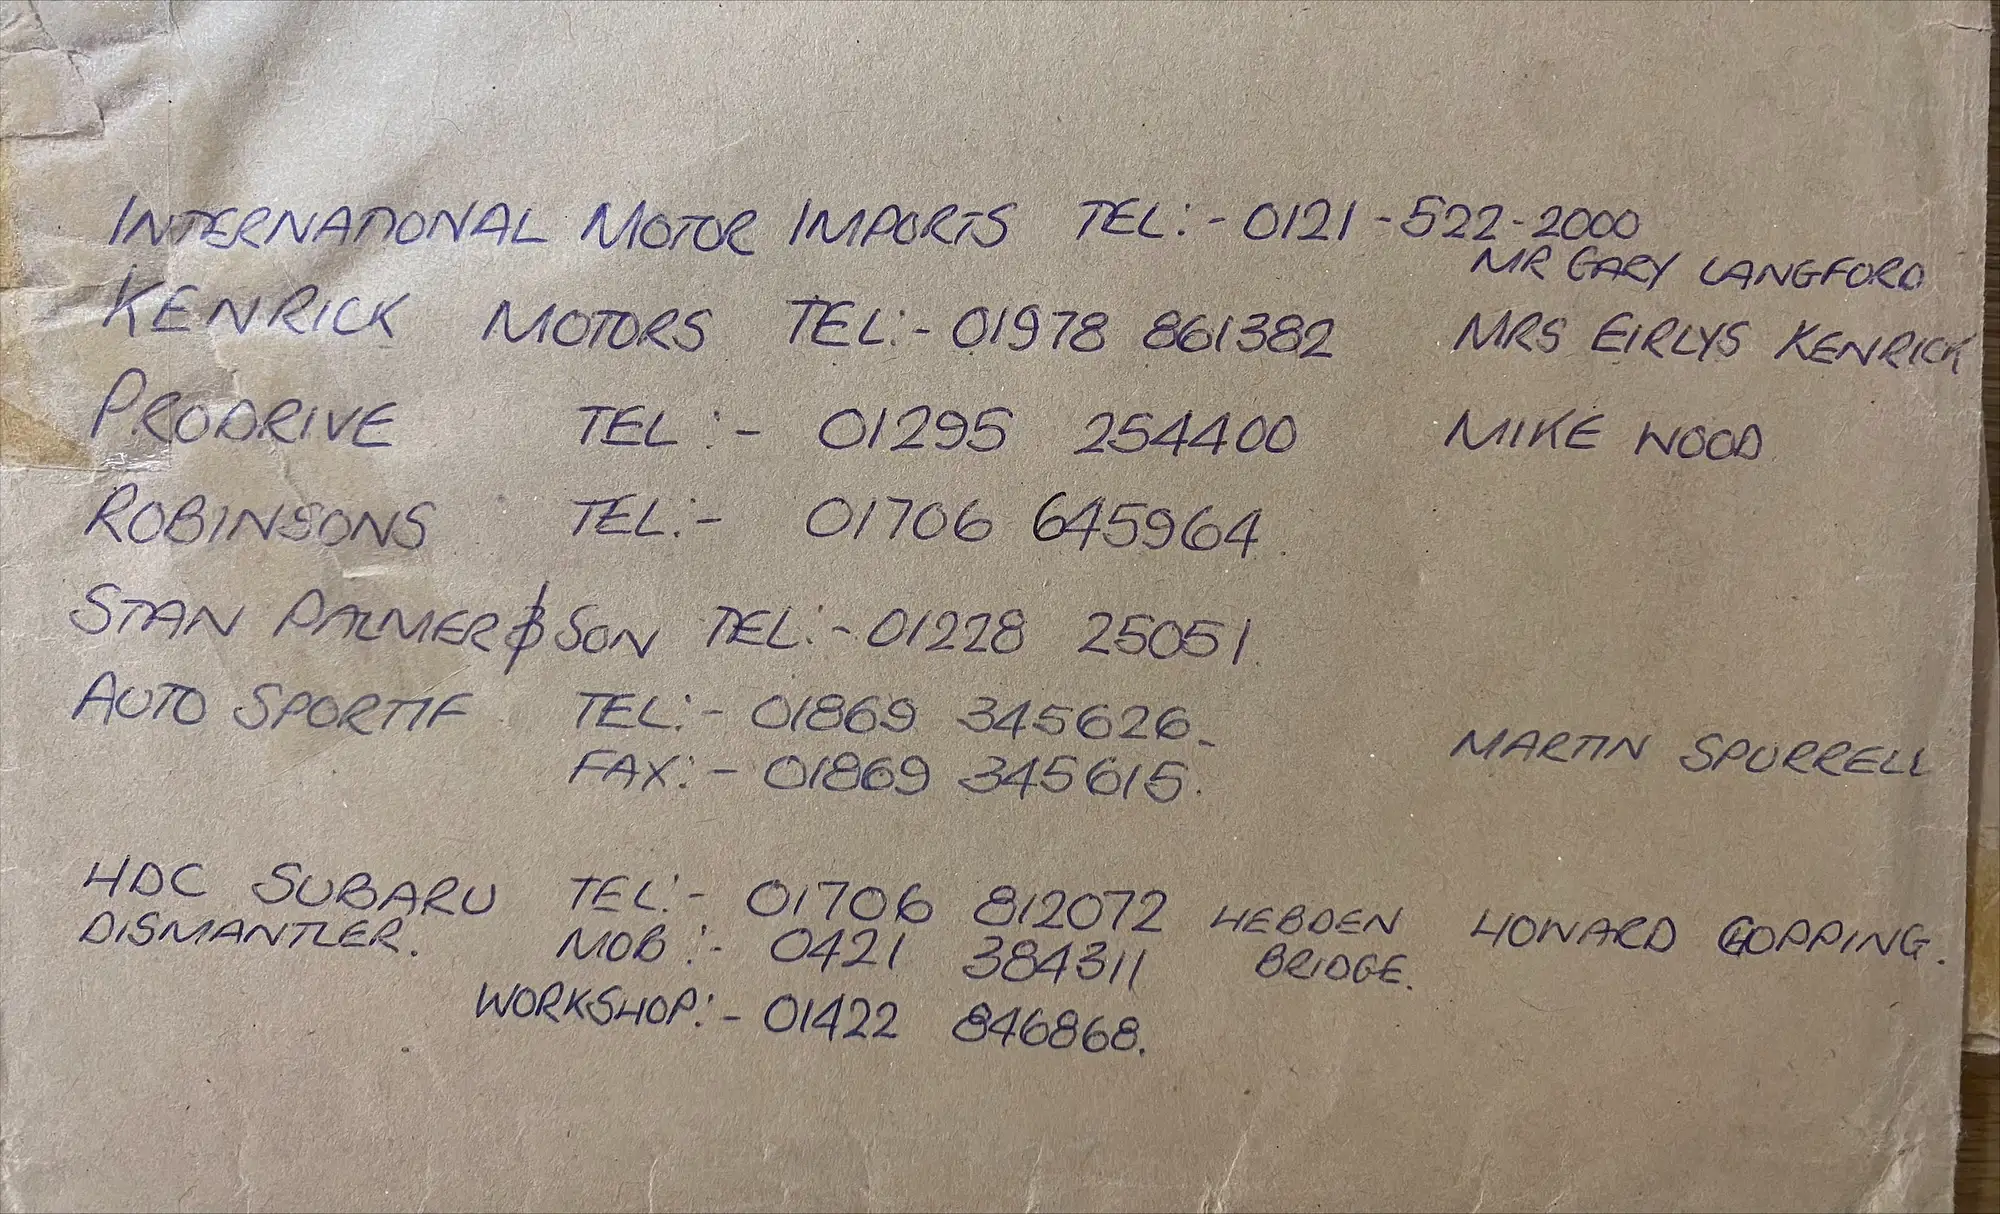 INTERNATIONAL MOTOR IMPORTS TEL:- 0121-522-2000
MR GARY LANGFORD
KENRICK MOTORS TEL:- 01978 861382 MRS EIRLYS KENRICK
PRODRIVE TEL:- 01295 254400 MIKE WOOD
ROBINSONS TEL:- 01706 645964.
STAN PALMER & SON TEL:- 01228 25051.
AUTO SPORTIF TEL:- 01869 345626
MARTIN SPURRELL
FAX:- 01869 345615.
HDC SUBARU TEL:- 01706 812072 HEBDEN HOWARD GOPPING.
DISMANTLER. MOB:- 0421 384311 BRIDGE.
WORKSHOP:- 01422 846868.